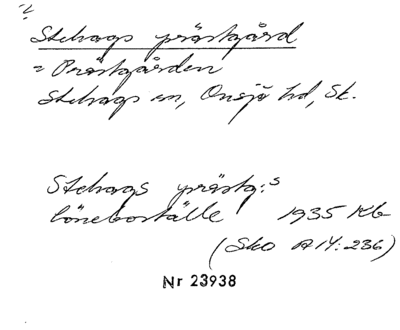 Stehags prästgård
= Prästgården
Stehags sn, Onsjö hd, Sk.
Stehags prästg:s
löneboställe 1935 Kb
(Sko A14:236)
Nr 23938